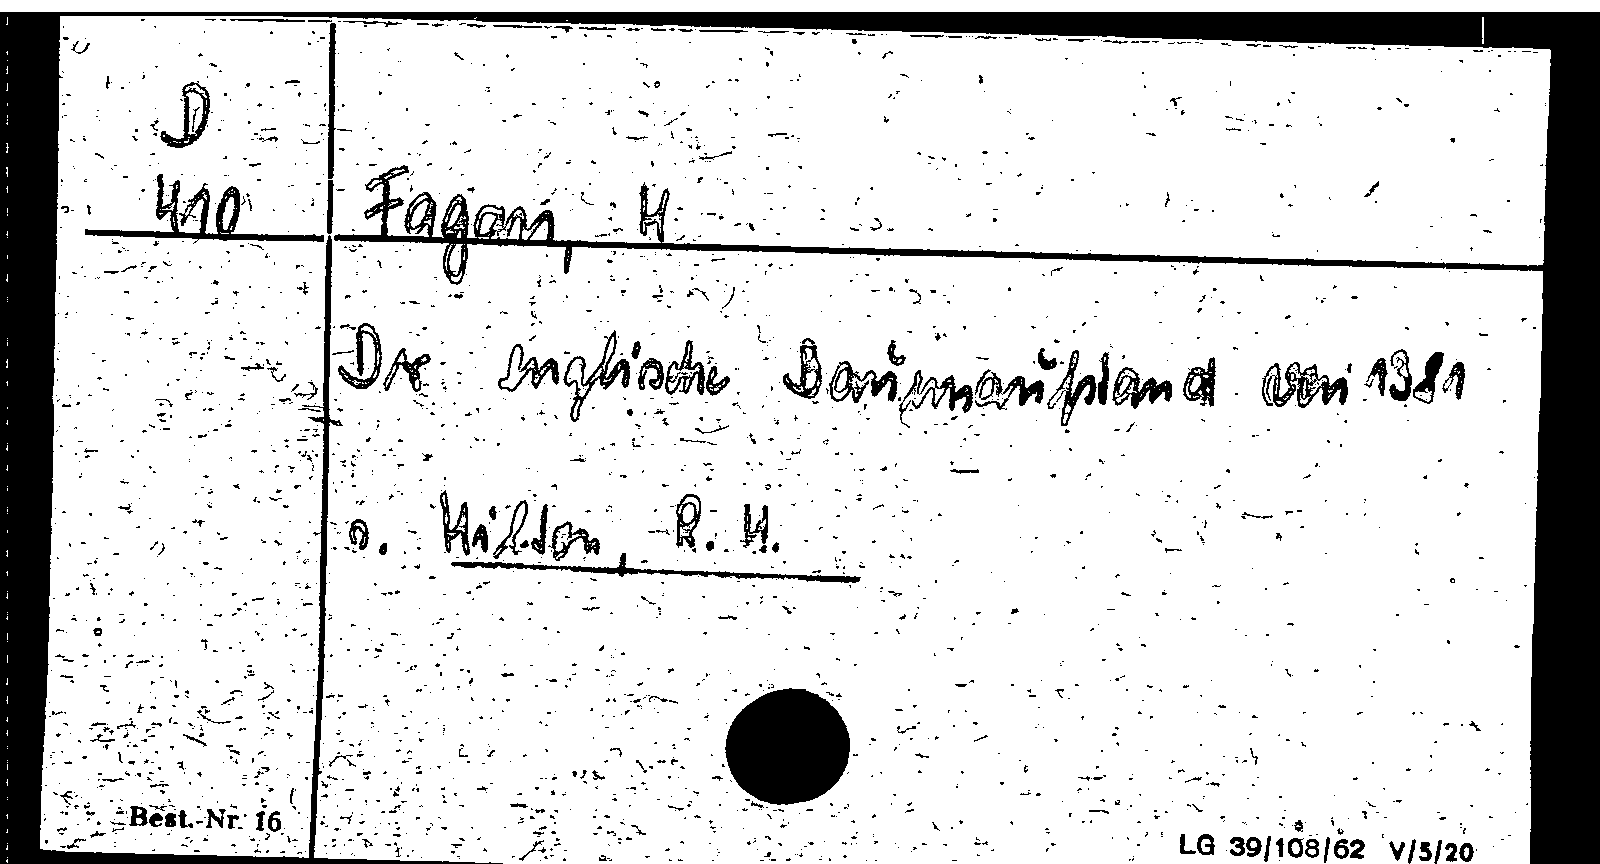 D
410 Fagan, H
Der englische Bauernaufstand von 1381
s. Hilton, R. H.
Best.-Nr. 16
LG 39/108/62 V/5/20